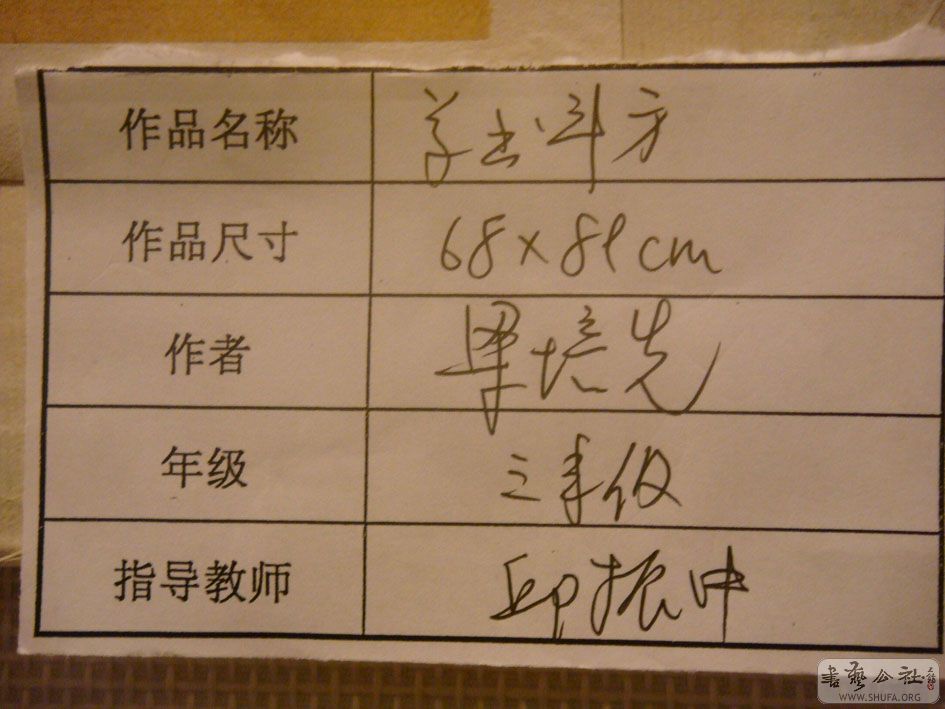 作品名称 草书斗方
作品尺寸 68×81cm
作者 梁培先
年级 三年级
指导教师 邱振中
書藝公社
WWW.SHUFA.ORG